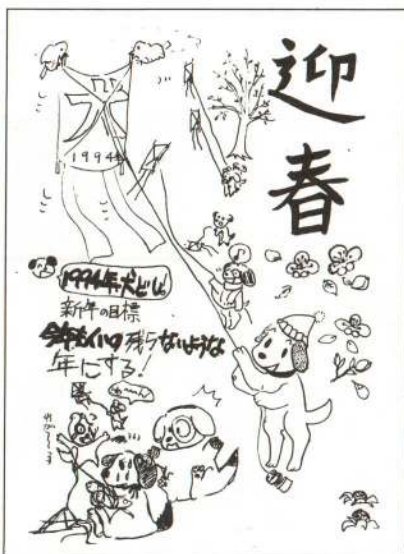 迎春
犬
1994年
1994年犬どし
新年の目標
今年もくいの残らないような
年にする!